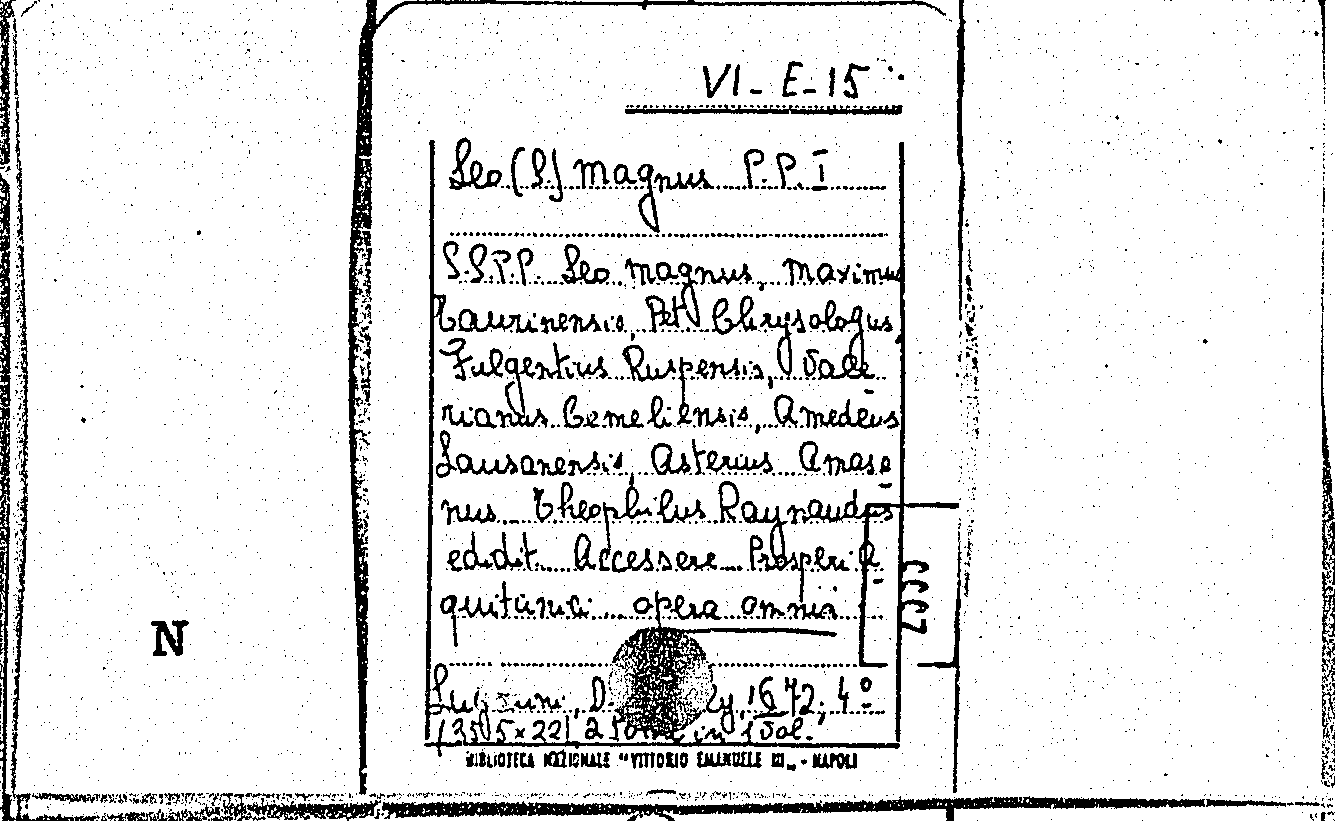 VI-E-15
Leo (S) Magnus P.P. I
S.S.P.P. Leo Magnus, Maximus
Taurinensis, Petr Chrysologus,
Fulgentius Ruspensis, Vale
rianus Cemeliensis, Amedeus
Lausanensis, Asterius Amase
nus Theophilus Raynaudus
edidit. Accessere Prosperi A
quitanici opera omnia
N
1672, 4º
(35,5×22) 2 in 1 Vol.
BIBLIOTECA NAZIONALE "VITTORIO EMANUELE III" - NAPOLI